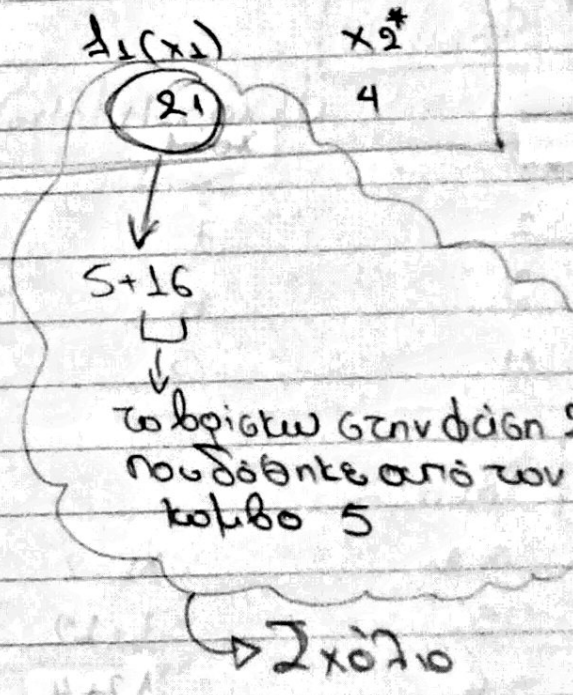 f1(x1) x2*
21 4
5+16
το βρίσκω στην φάση 2
που δόθηκε από τον
κόμβο 5
Σχόλιο